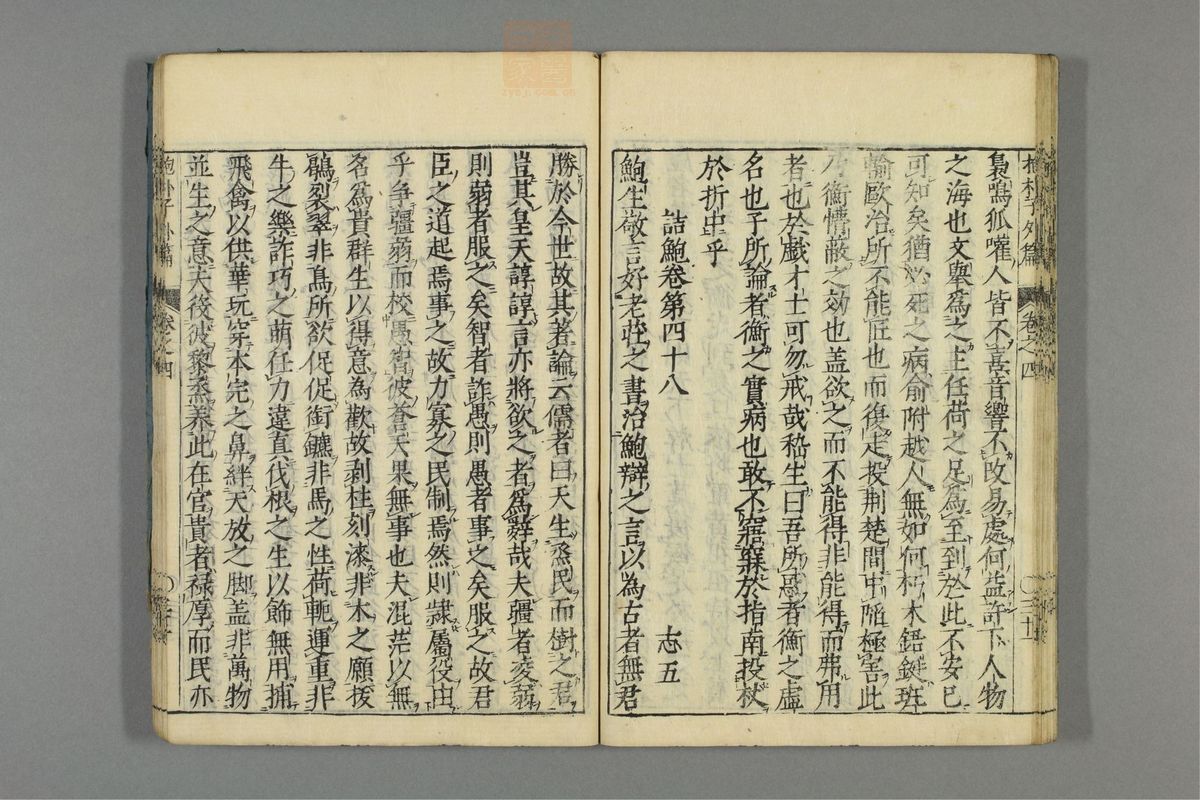 梟鳴狐嚾人皆不喜音響不改易處何益許下人物
之海也文舉爲之主任荷之足爲至到於此不安已
可知矣猶必死之病俞附越人無如何朽木鉛鋌班
輸歐冶所不能匠也而復走投荊楚間中陷極害此
乃衡懵蔽之効也盖欲之而不能得非能得而弗用
者也於戯才士可勿戒哉嵇生曰吾所惑者衡之虛
名也子所論者衡之實病也敢不寤寐於指南投杖
於折中乎
詰鮑卷第四十八
志五
鮑生敬言好老莊之書治鮑辯之言以為古者無君
勝於今世故其著論云儒者曰天生烝民而樹之君
豈其皇天諄諄言亦將欲之者爲辭哉夫彊者凌弱
則弱者服之矣智者詐愚則愚者事之矣服之故君
臣之道起焉事之故力寡之民制焉然則隸屬役由
乎争彊弱而校愚智彼蒼天果無事也夫混茫以無
名爲貴群生以得意為歡故剥桂刻漆非木之願拔
鶡裂翠非鳥所欲促促銜鑣非馬之性荷軛運重非
牛之樂詐巧之萌任力違真伐根之生以飾無用捕
飛禽以供華玩穿本完之鼻絆天放之脚盖非萬物
並生之意夫役彼黎烝养此在官貴者禄厚而民亦
抱朴子外篇
卷之四
抱朴子外篇
卷之四